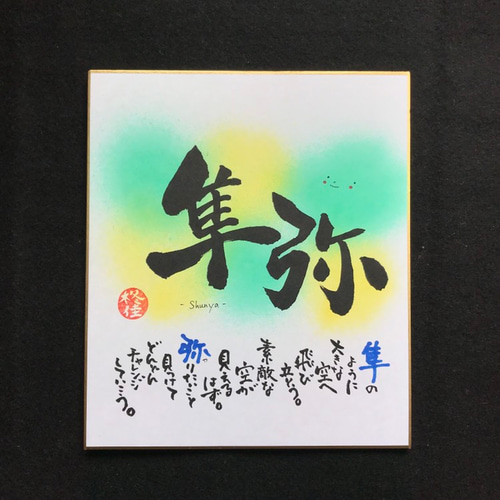 隼弥
- Shunya -
隼の
ように
大きな
空へ
飛び
立とう。
素敵な
空が
見える
はず。
弥りたいこと
見つけて
どんどん
チャレンジ
していこう。